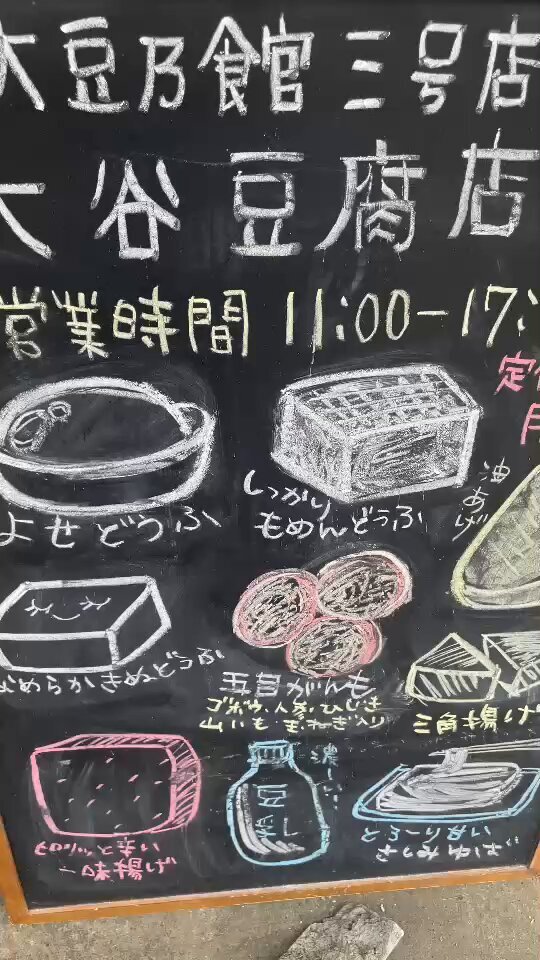 大豆乃館三号店
大谷豆腐店
営業時間 11:00-17:
定休
月
よせどうふ
しっかり
もめんどうふ
油あげ
なめらかきぬどうふ
五目がんも
ごぼう・人参・ひじき
山いも・玉ねぎ入り
三角揚げ
ピリッと辛い
一味揚げ
濃ーい
豆乳
とろーりあまい